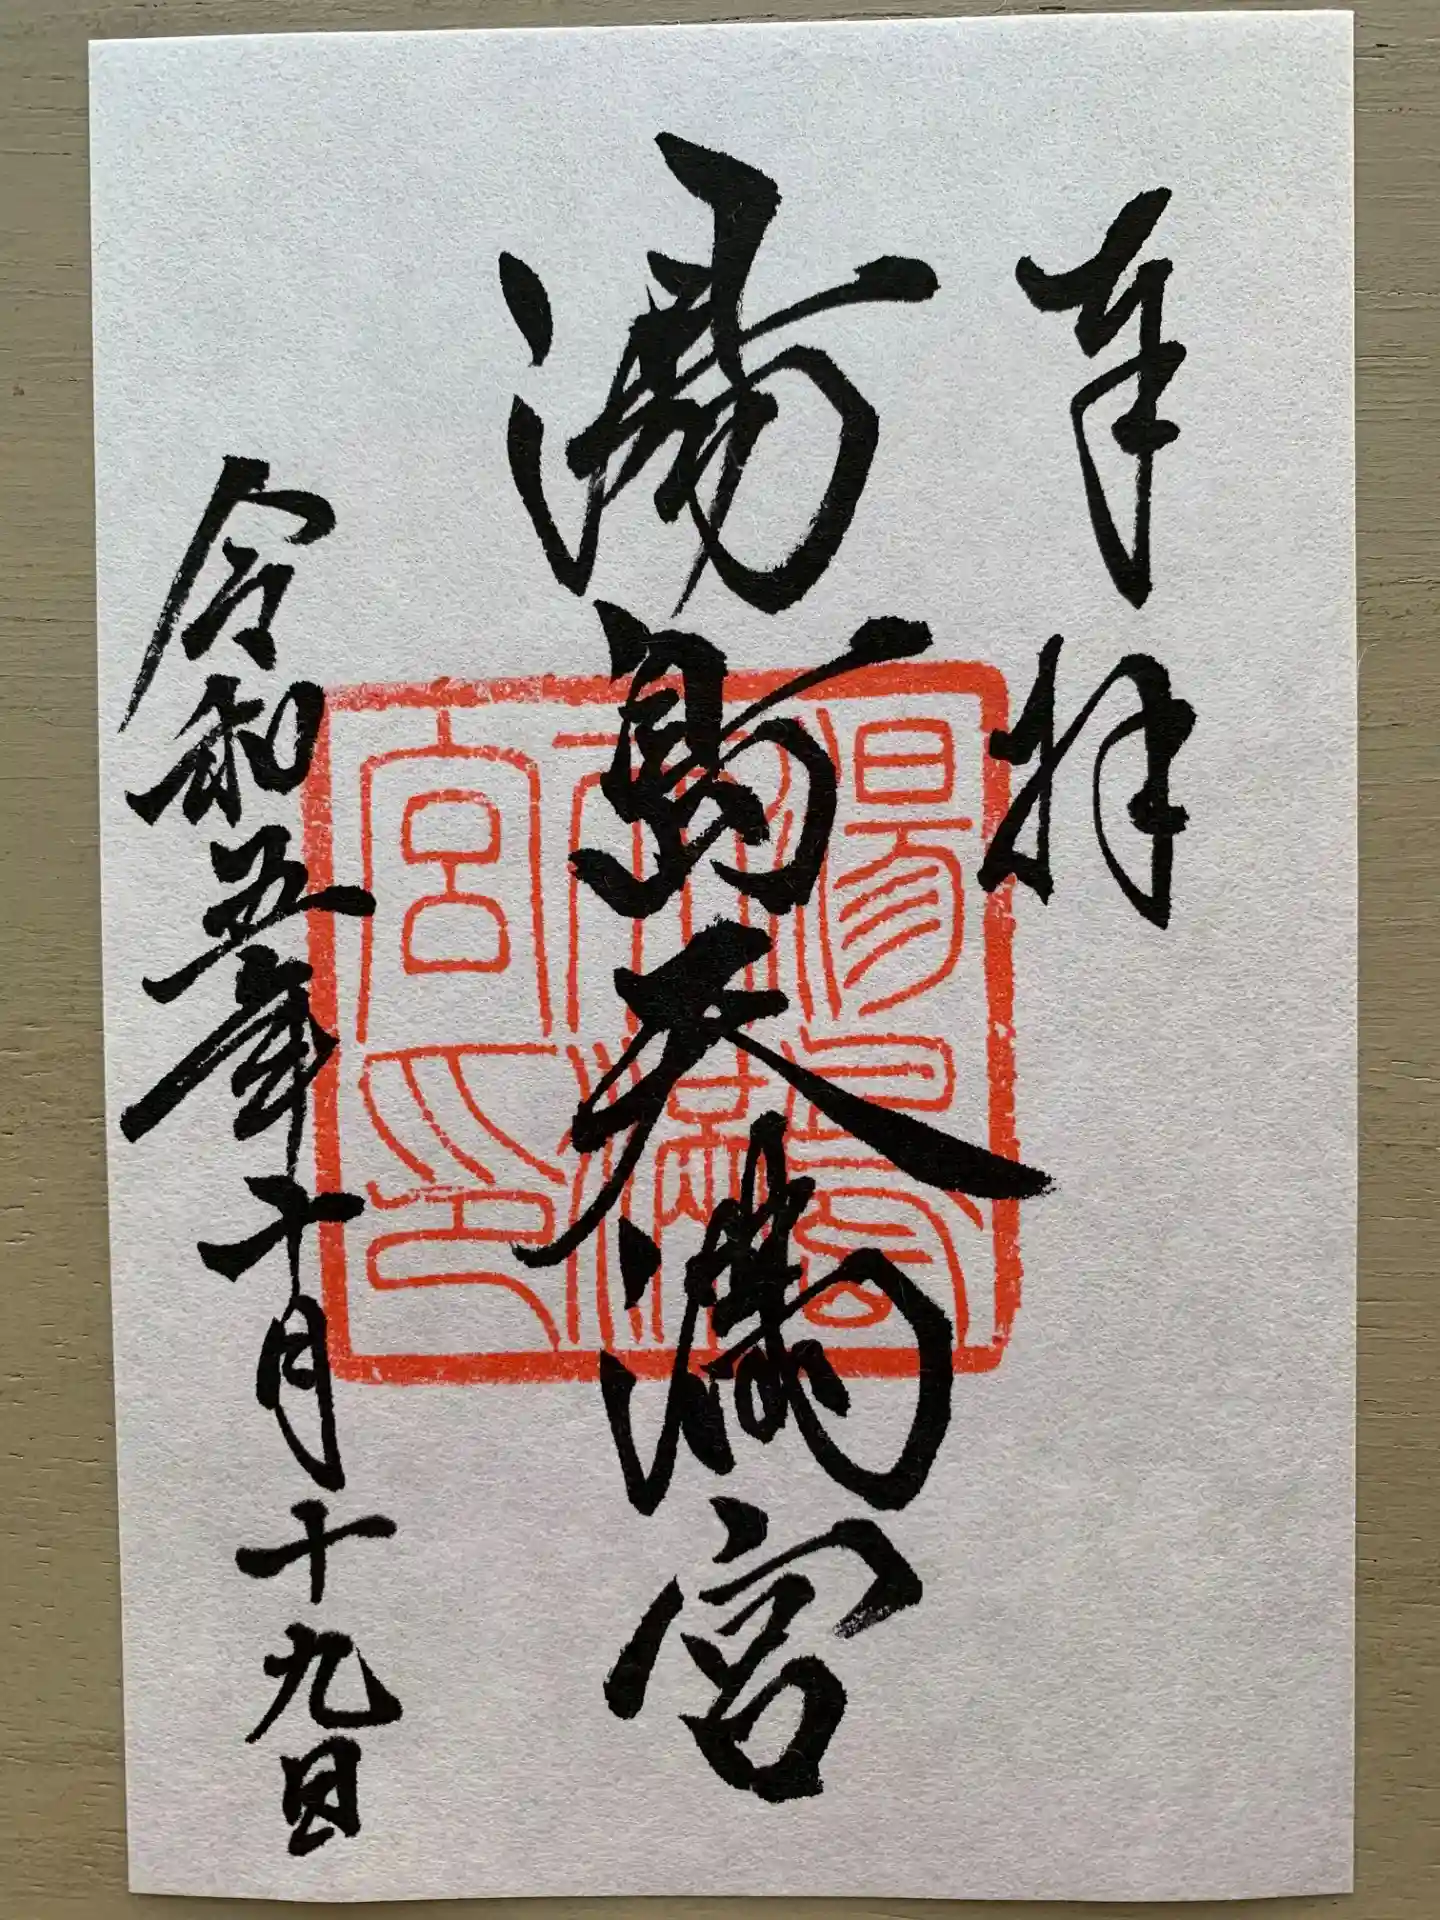 奉拝
湯島天満宮
令和五年十月十九日
湯島天満宮之印